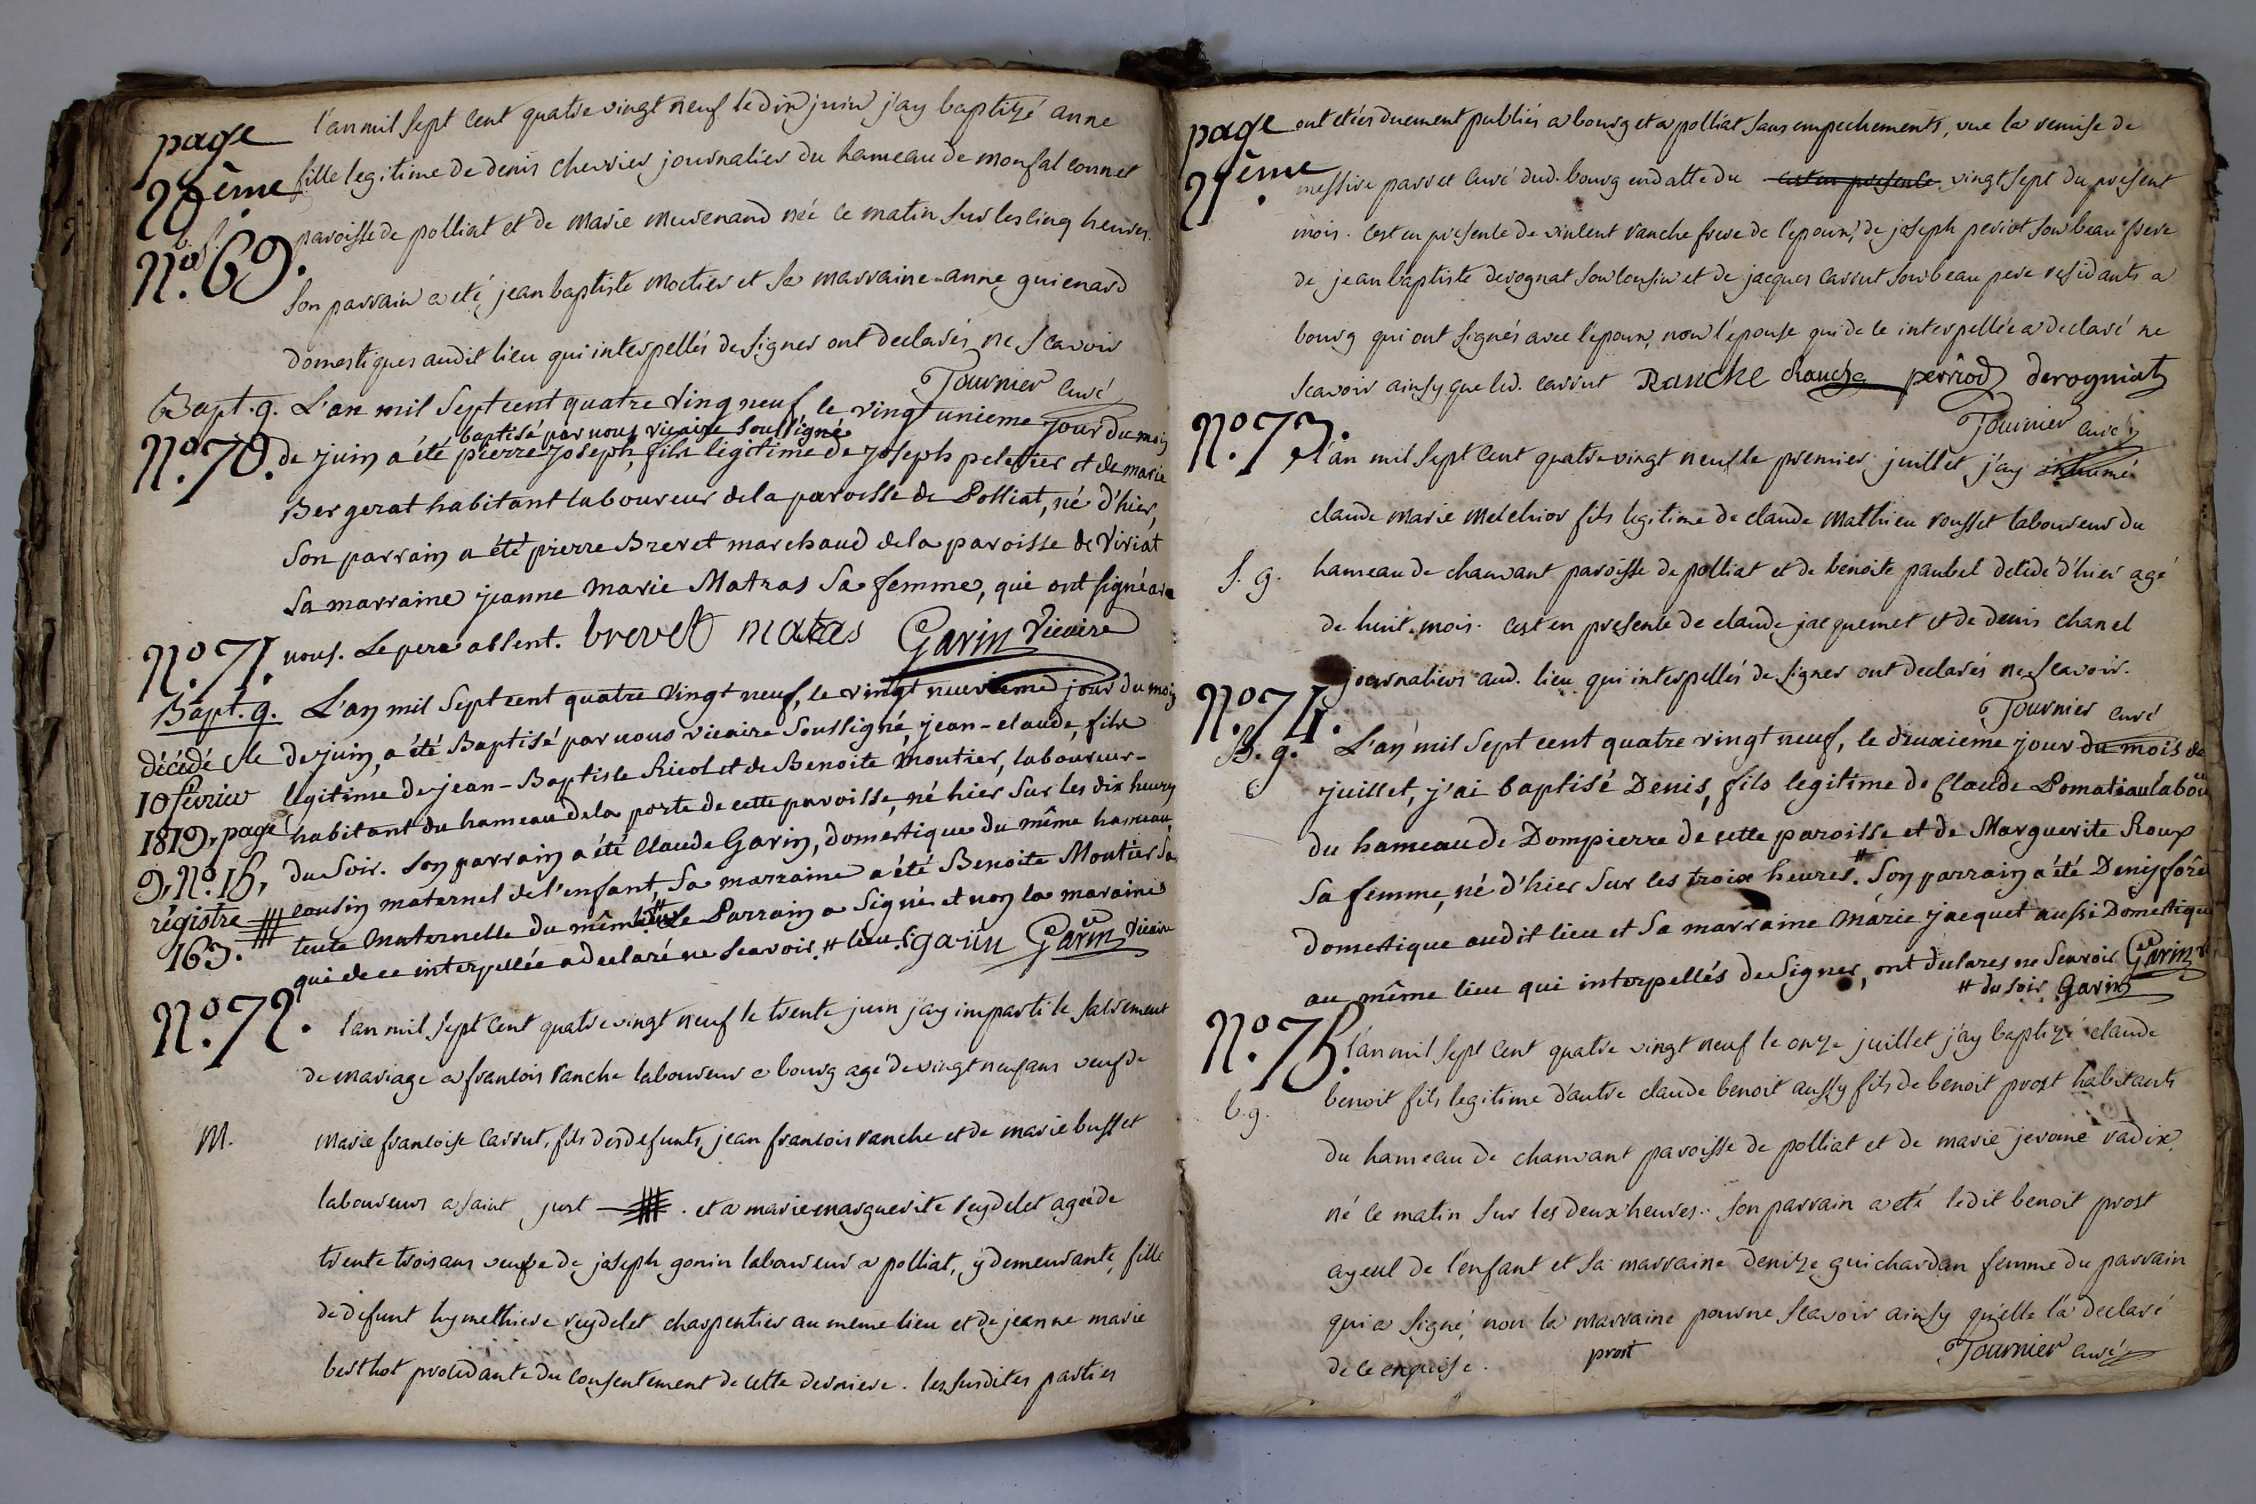 page
20ème
l'an mil sept cent quatre vingt neuf le dix juin j'ay baptizé anne
fille legitime de denis chevrier journalier du hameau de monfalconnet
b. f.
N.º 69.
paroisse de polliat et de marie murenand née ce matin sur les cinq heures.
son parrain a eté jean baptiste moctier et sa marraine anne guienard
domestiques audit lieu qui interpellés de signer ont declarés ne scavoir
Tournier curé
Bapt. g. L'an mil sept cent quatre ving neuf, le vingt unieme jour du mois
baptisé par nous vicaire soussigné
N.º 70. de juin a été pierre joseph, fils légitime de joseph peletier et de marie
Bergerat habitant laboureur de la paroisse de Polliat, né d'hier,
son parrain a été pierre Brevet marchand de la paroisse de Viriat
sa marraine jeanne marie Matras sa femme, qui ont signé avec
N.º 71. nous. Le pere absent. brevet matras Garin Vicaire
Bapt. g. L'an mil sept cent quatre vingt neuf, le vingt neuvieme jour du mois
décédé le de juin, a été Baptisé par nous vicaire soussigné, jean-claude, fils
10 février legitime de jean-Baptiste Ricol et de Benoite moutier, laboureur
1819, page habitant du hameau de la porte de cette paroisse, né hier sur les dix heures
9, N.º 15, du soir. son parrain a été Claude Garin, domestique du même hameau,
régistre cousin maternel de l'enfant, sa marraine a été Benoite Moutier sa
163. tente maternelle du même Le Parrain a signé et non la maraine
qui de ce interpellée a declaré ne scavoir. # lieu. garin Garin Vicaire
N.º 72. l'an mil sept cent quatre vingt neuf le trente juin j'ay imparti le sacrement
de mariage a francois ranche laboureur a bourg agé de vingt neuf ans veuf de
M. marie francoise carrut, fils des defunts, jean francois ranche et de marie buffet
laboureurs a saint just . et a marie marguerite reydelet agée de
trente trois ans veufve de joseph gonin laboureur a polliat, y demeurante, fille
de defunt hymethiere reydelet charpentier au meme lieu et de jeanne marie
berthot procedante du consentement de cette derniere. les susdites parties
page
21ème
ont etées duement publiés a bourg et a polliat sans empechements, vue la remise de
messire parret curé dud. bourg en datte du cest en presence vingt sept du present
mois. cest en presence de vincent ranche frere de l'epoux, de joseph periot son beau frere
de jean baptiste derognat son cousin et de jacques carrut son beau pere residants a
bourg qui ont signés avec l'epoux, non l'epouse qui de ce interpellée a declaré ne
scavoir ainsy que led. carrut Ranche Ranche perrod derogniat
Tournier curé
N.º 73. l'an mil sept cent quatre vingt neuf le premier juillet j'ay inhumé
claude marie melchior fils legitime de claude mathieu rousset laboureur du
s. g. hameau de chanvant paroisse de polliat et de benoite paubel decedé d'hier agé
de huit mois. cest en presence de claude jacquemet et de denis chanel
journaliers aud. lieu qui interpellés de signer ont declarés ne scavoir.
Tournier curé
N.º 74.
B. g. L'an mil sept cent quatre vingt neuf, le deuxieme jour du mois de
juillet, j'ai baptisé Denis, fils legitime de Claude Pomatiau
du hameau de Dompierre de cette paroisse et de Marguerite Roux
sa femme, né d'hier sur les troix heures. # Son parrain a été Denis forê
domestique audit lieu et sa marraine marie jacquet aussi Domestique
au même lieu qui interpellés de signer, ont declares ne scavoir Garin
# du soir. Garin
N.º 75. l'an mil sept cent quatre vingt neuf le onze juillet j'ay baptizé claude
b. g. benoit fils legitime d'autre claude benoit aussy fils de benoit prost habitants
du hameau de chanvant paroisse de polliat et de marie jerome radix,
né ce matin sur les deux heures. son parrain a eté ledit benoit prost
ayeul de l'enfant et sa marraine denize guichardan femme du parrain
qui a signé, non la marraine pour ne scavoir ainsy qu'elle l'a declaré
de ce enquise. prost Tournier curé